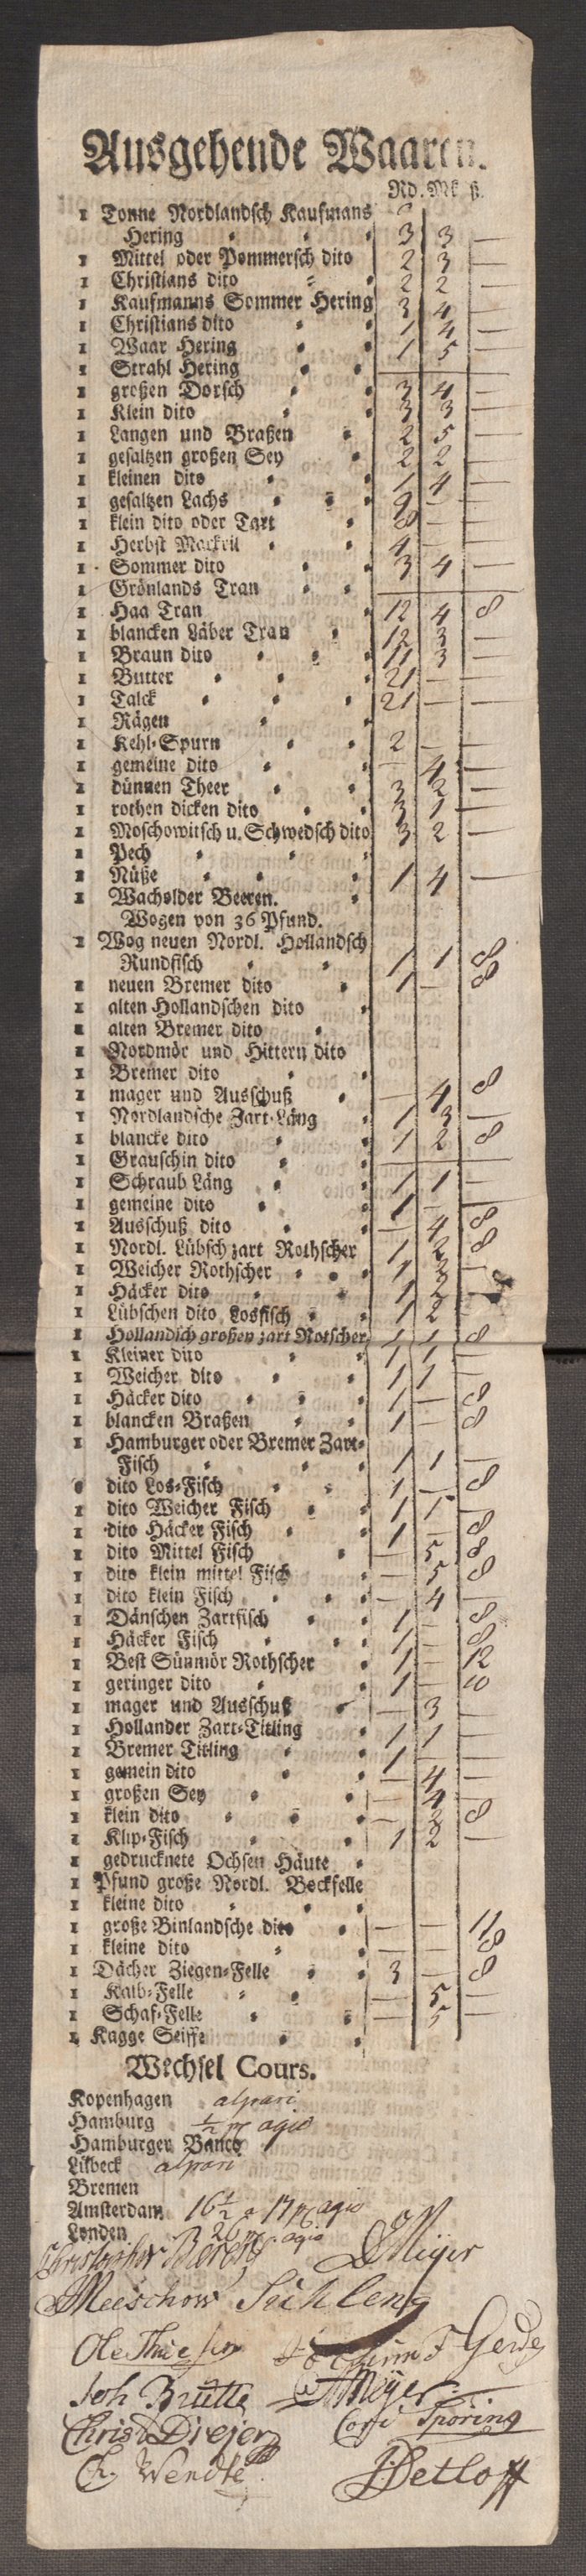 Ausgehende Waaren.
Rd. Mk ß.
1 Tonne Nordlandsch Kaufmans
Hering 3 3 —
1 Mittel oder Pommersch dito 2 3 —
1 Christians dito 2 2 —
1 Kaufmanns Sommer Hering 3 4 —
1 Christians dito 1 4 —
1 Waar Hering 1 5 —
1 Strahl Hering —
1 großen Dorsch 3 4 —
1 Klein dito 3 3 —
1 Langen und Braßen 2 5 —
1 gesaltzen großen Sey 2 2 —
1 kleinen dito 1 4 —
1 gesaltzen Lachs 9 — —
1 klein dito oder Tart 8 — —
1 Herbst Mackril 4 — —
1 Sommer dito 3 4 —
1 Grönlands Tran —
1 Haa Tran 12 4 8
1 blancken Läber Tran 12 3 —
1 Braun dito 11 3 —
1 Butter 21 — —
1 Talck 21 — —
1 Rägen
1 Kehl-Spurn 2 — —
1 gemeine dito — 4 —
1 dünnen Theer 3 2 —
1 rothen dicken dito 3 1 —
1 Moschowitsch u. Schwedsch dito 3 2 —
1 Pech
1 Nüße 1 4 —
1 Wacholder Beeren.
Wogen von 36 Pfund.
1 Wog neuen Nordl. Hollandsch
Rundfisch 1 1 8
1 neuen Bremer dito 1 — 8
1 alten Hollandschen dito
1 alten Bremer dito
1 Nordmör und Hittern dito
1 Bremer dito
1 mager und Ausschuß — 4 8
1 Nordlandsche Zart-Läng 1 3 —
1 blancke dito 1 2 8
1 Grauschin dito —
1 Schraub Läng 1 1 —
1 gemeine dito 1 — —
1 Ausschuß dito — 4 8
1 Nordl. Lübsch zart Rothscher 1 2 8
1 Weicher Rothscher 1 3 —
1 Häcker dito 1 2
1 Lübschen dito Losfisch 1 2 —
1 Hollandich großen zart Rotscher 1 1 8
1 Kleiner dito 1 1 —
1 Weicher dito 1 1 —
1 Häcker dito 1 — 8
1 blancken Braßen 1 — 8
1 Hamburger oder Bremer Zart-
Fisch 1 1 —
dito Los-Fisch 1 — 8
1 dito Weicher Fisch 1 1 —
1 dito Häcker Fisch 1 — 8
1 dito Mittel Fisch — 5 8
1 dito klein mittel Fisch — 5 8
1 dito klein Fisch — 4 —
1 Dänschen Zartfisch 1 — 8
1 Häcker Fisch 1 — 8
1 Best Sünmör Rothscher 1 — 12
1 geringer dito 1 — 10
1 mager und Ausschuß — 3 —
1 Hollander Zart-Titling 1 1 —
1 Bremer Titling 1 — —
1 gemein dito — 4 —
1 großen Sey — 4 —
1 klein dito — 3 8
1 Klip-Fisch 1 2 —
1 gedrucknete Ochsen Häute
1 Pfund große Nordl. Bockfelle
1 kleine dito
1 große Binlandsche dito — — 11
1 kleine dito — — 8
1 Dächer Ziegen-Felle 3 — 8
1 Kalb-Felle — 5 —
1 Schaf-Felle — 5 —
1 Kagge Seiffe
Wechsel Cours.
Kopenhagen alpari
Hamburg 1/2 pc agio
Hamburger Banco
Lübeck alpari
Bremen
Amsterdam 16 1/2 a 17 pc agio
Londen 26 pc. agio
Christopher Berens Meyer
Meeschow Sihleng
Ole Thiesen Jochim F Gerdes
Joh Brütte Meyer
Christ Diejer Cort Sporing
Ch. Wendte Detloff